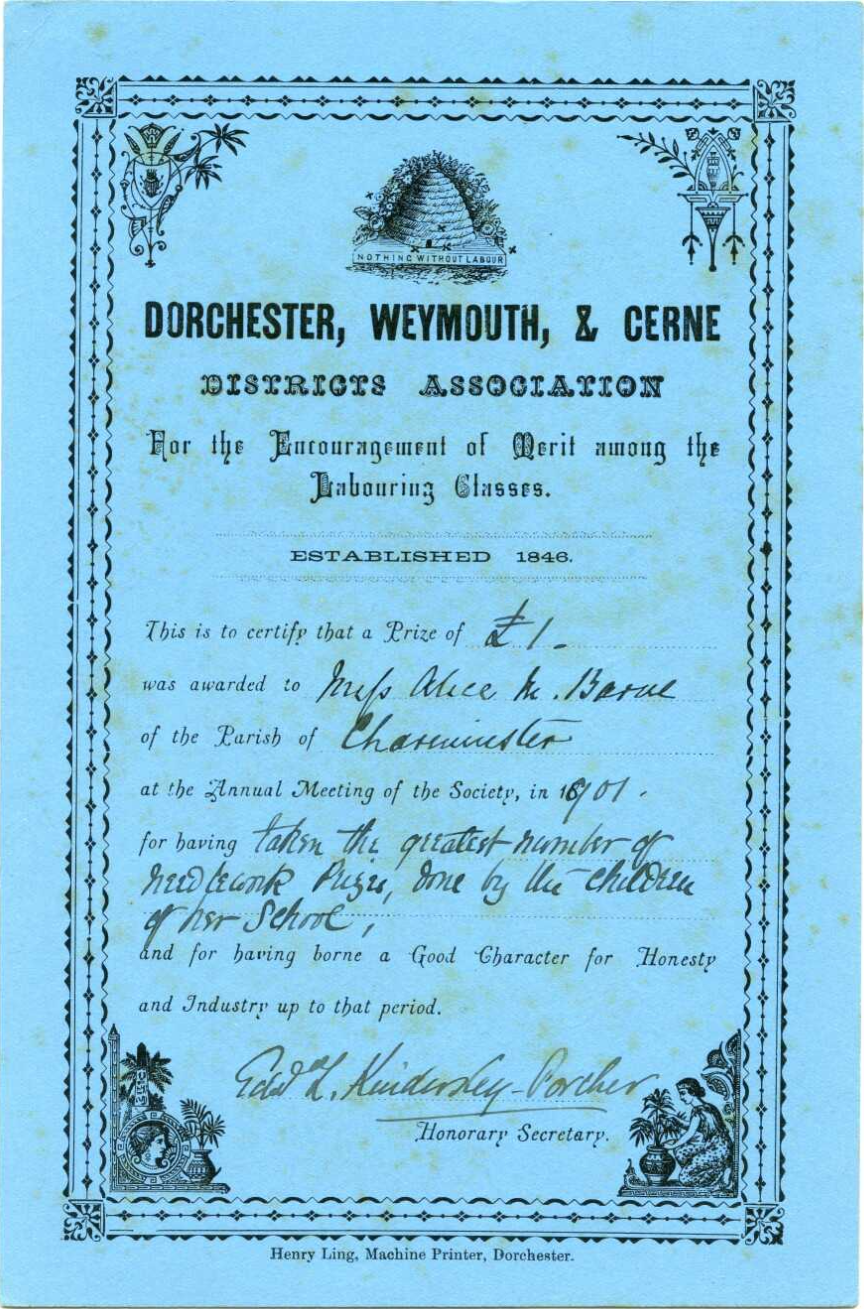 NOTHING WITHOUT LABOUR
DORCHESTER, WEYMOUTH, & CERNE
DISTRICTS ASSOCIATION
For the Encouragement of Merit among the
Labouring Classes.
ESTABLISHED 1846.
This is to certify that a Prize of £1.
was awarded to Miss Alice M. Barne
of the Parish of Charminster
at the Annual Meeting of the Society, in 1901.
for having taken the greatest number of
needlework Prizes, done by the children
of her School,
and for having borne a Good Character for Honesty
and Industry up to that period.
Edwd L. Kindersley-Porcher
Honorary Secretary.
Henry Ling, Machine Printer, Dorchester.